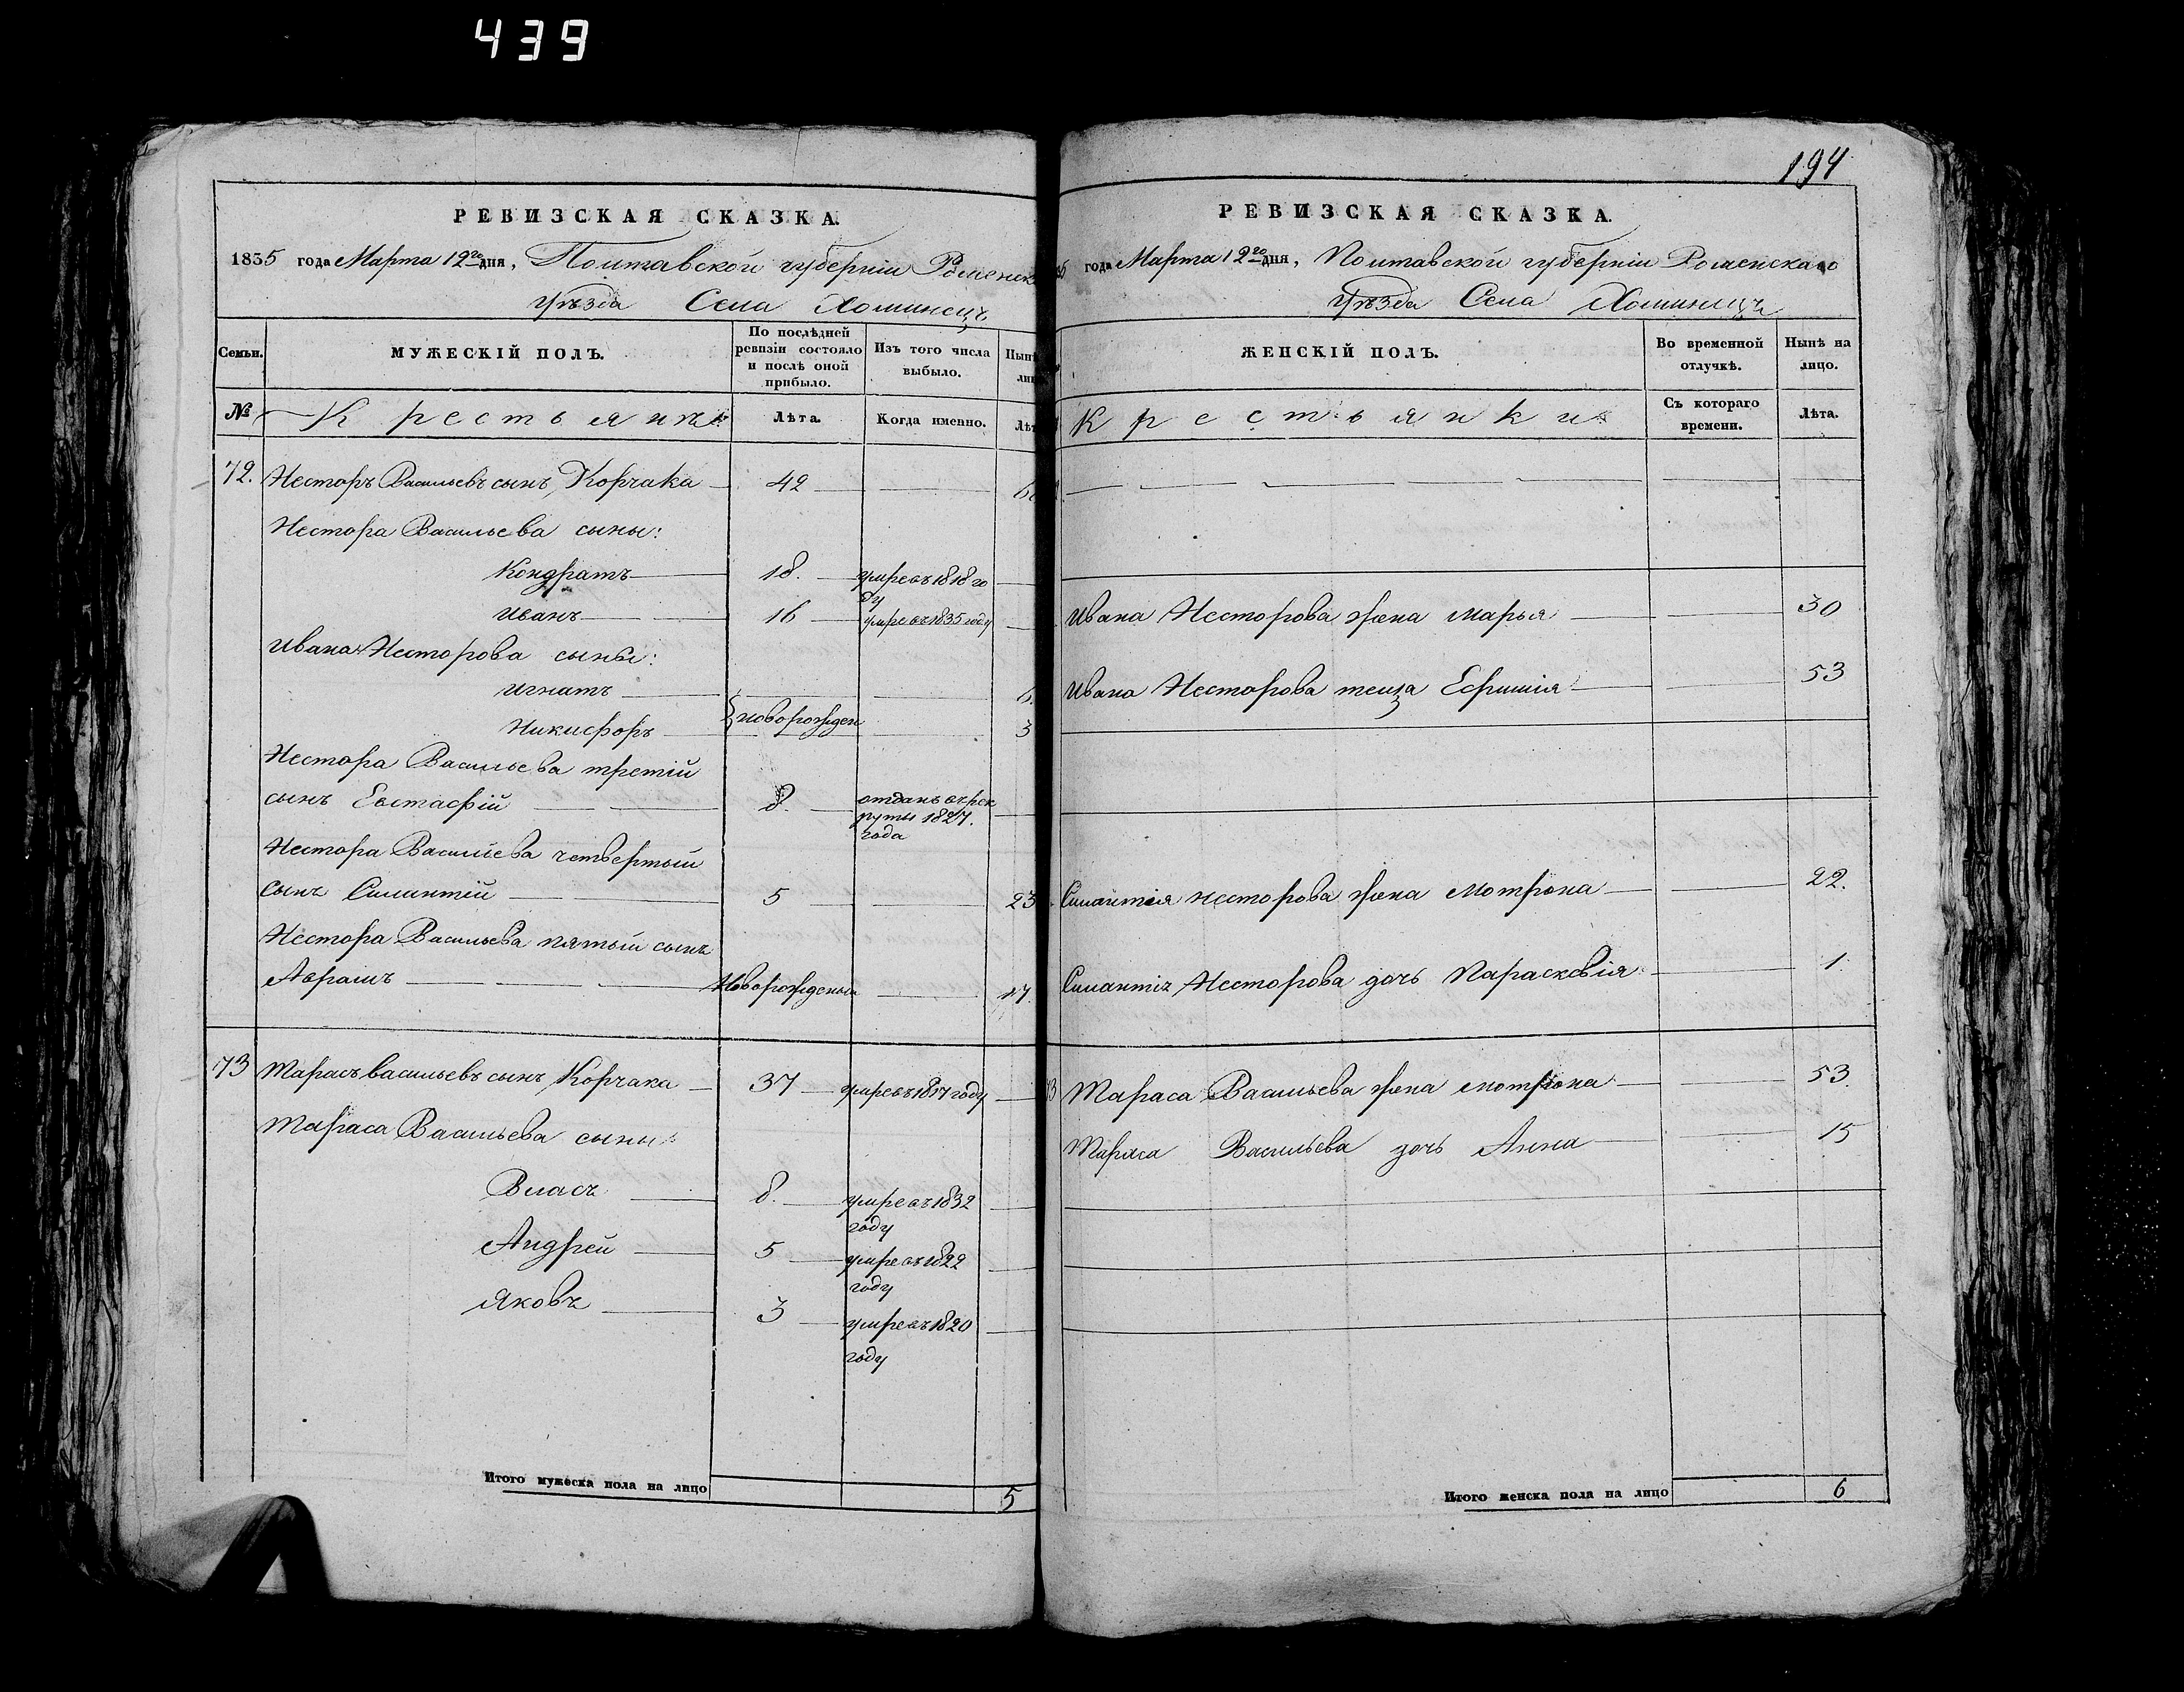 439
194
РЕВИЗСКАЯ СКАЗКА.
1835 года Марта 12го дня, Полтавской губерніи Роменск
уѣзда Села Хоминецъ
Семьи. МУЖЕСКІЙ ПОЛЪ. По послѣдней ревизіи состояло и послѣ оной прибыло. Изъ того числа выбыло. Нын
№ Крестьянѣ: Лѣта. Когда именно. Лѣт
72. Несторъ Васильевъ сынъ Корчака 42
Нестора Васильева сыны:
Кондратъ 18. умре въ 1818 го
ду
Иванъ 16 умре въ 1835 году
Ивана Несторова сыны:
Игнатъ 6.
Никифоръ новорожден 3
Нестора Васильева третій
сынъ Евстафій 8. отданъ въ рек
руты 1827.
года
Нестора Васильева четвертый
сынъ Силантій 5 23
Нестора Васильева пятый сынъ
Аврамъ Новорожденый 17.
73 Тарасъ Васильевъ сынъ Корчака 37 умре въ 1817 году
Тараса Васильева сыны:
Власъ 8. умре въ 1832
году
Андрей 5 умре въ 1822
году
Яковъ 3 умре въ 1820
году
Итого мужеска пола на лицо 5
РЕВИЗСКАЯ СКАЗКА.
года Марта 12го дня, Полтавской губерніи Роменскаго
уѣзда Села Хоминецъ
ЖЕНСКІЙ ПОЛЪ. Во временной отлучкѣ. Нынѣ на лицо.
Крестьянки: Съ котораго времени. Лѣта.
Ивана Несторова жена Марья 30
Ивана Несторова теща Ефимія 53
Силантія Несторова жена Мотрона 22.
Силантія Несторова дочь Парасковія 1.
Тараса Васильева жена Мотрона 53.
Тараса Васильева дочь Анна 15
Итого женска пола на лицо 6